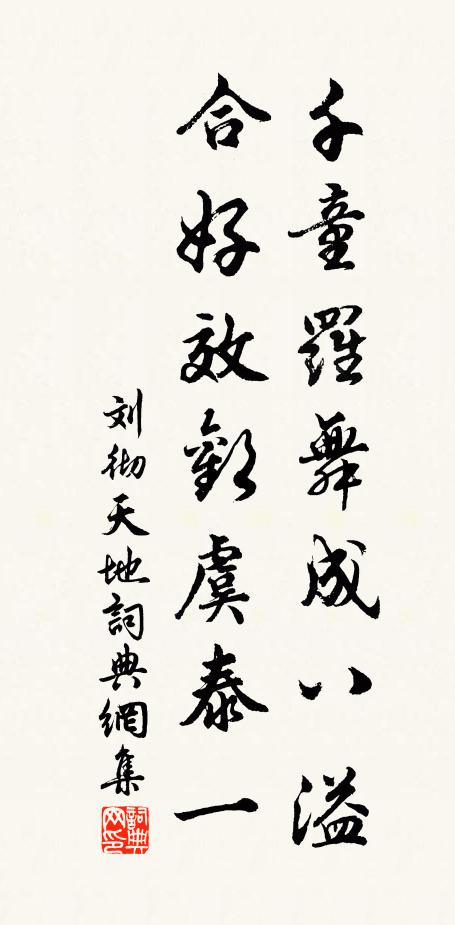 千童羅舞成八溢
合好效歡虞泰一
刘彻天地詞典網集
詞典网印